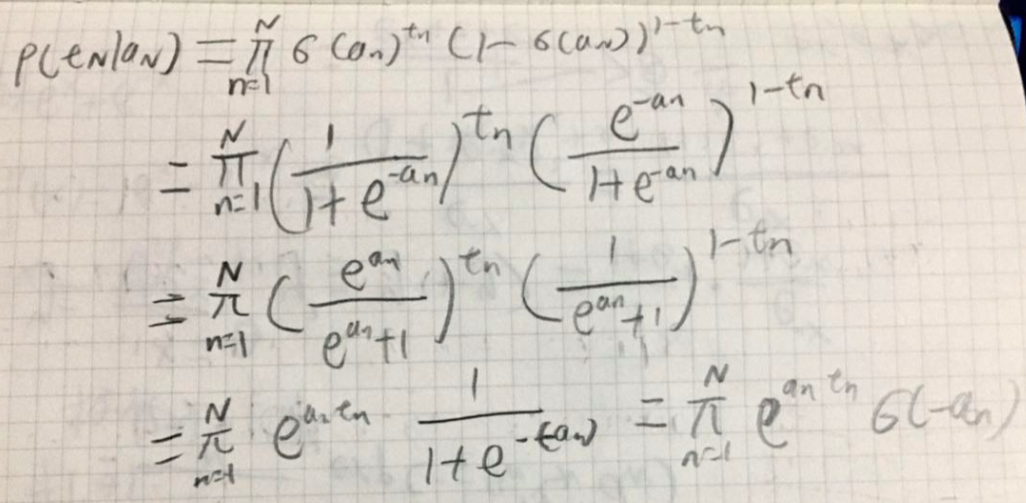 p(t_N|a_N) = ∏_{n=1}^{N} σ(a_n)^{t_n} (1 - σ(a_N))^{1-t_n}
= ∏_{n=1}^{N} (1 / (1 + e^{-a_n}))^{t_n} (e^{-a_n} / (1 + e^{-a_n}))^{1-t_n}
= ∏_{n=1}^{N} (e^{a_n} / (e^{a_n} + 1))^{t_n} (1 / (e^{a_n} + 1))^{1-t_n}
= ∏_{n=1}^{N} e^{a_n t_n} 1 / (1 + e^{-(-a_n)}) = ∏_{n=1}^{N} e^{a_n t_n} σ(-a_n)